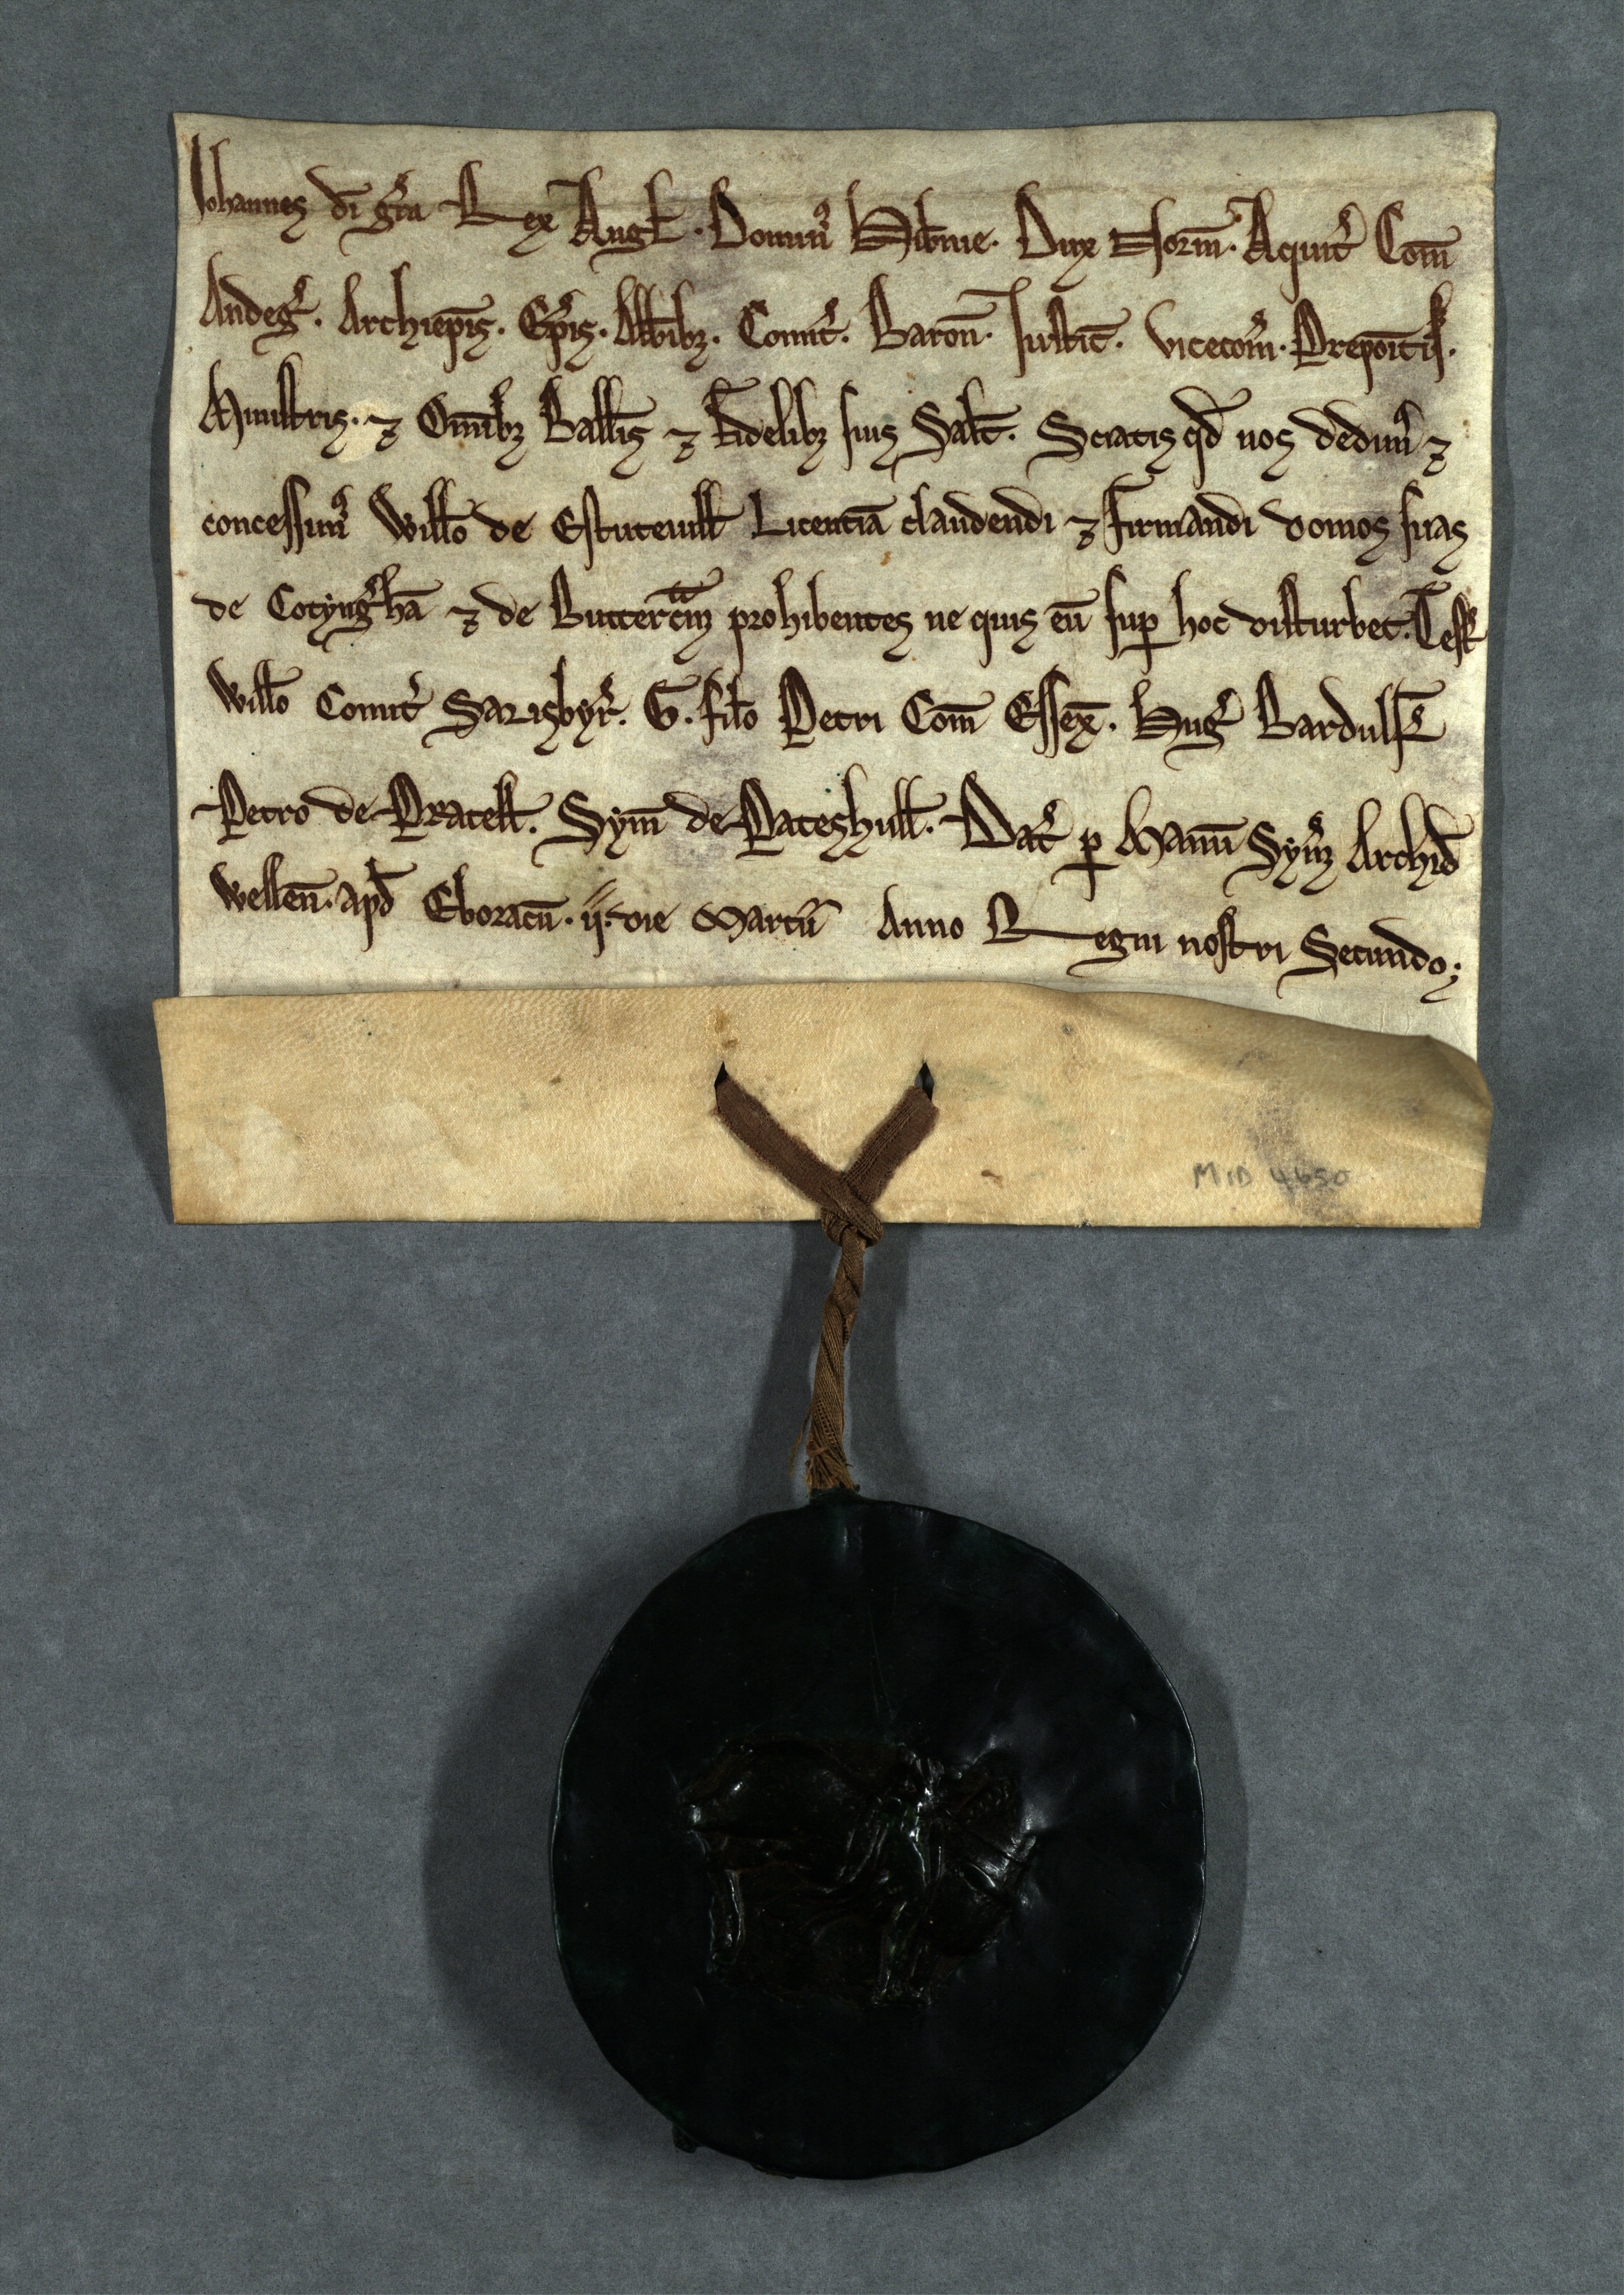 Iohannes di gra Rex Angl. Domin' Hibnie. Dux Norm. Aquit' Com
Andeg'. Archiepis. Epis. Abbibz. Comit'. Baron. Iustic. vicecom. Prepoitis.
Ministris. ⁊ Omibz Ballis ⁊ Fidelibz suis Salt. Sciatis qd nos dedim' ⁊
concessim' Willo de Estuteuill Licentiā claudendi ⁊ firmandi domos suas
de Cotyngh'ā ⁊ de Buttercm prohibentes ne quis eū sup hoc disturbet. Test'
Willo Comit' Sarisbyr'. G. filo Petri Com Essex. Hug' Bardulf
Petro de Pratell. Sym de Pateshull. Dat' p Manū Sym Archid
Wellen. apd Eboracū. ij. die Martii Anno Regni nostri Secundo;
MID 4650